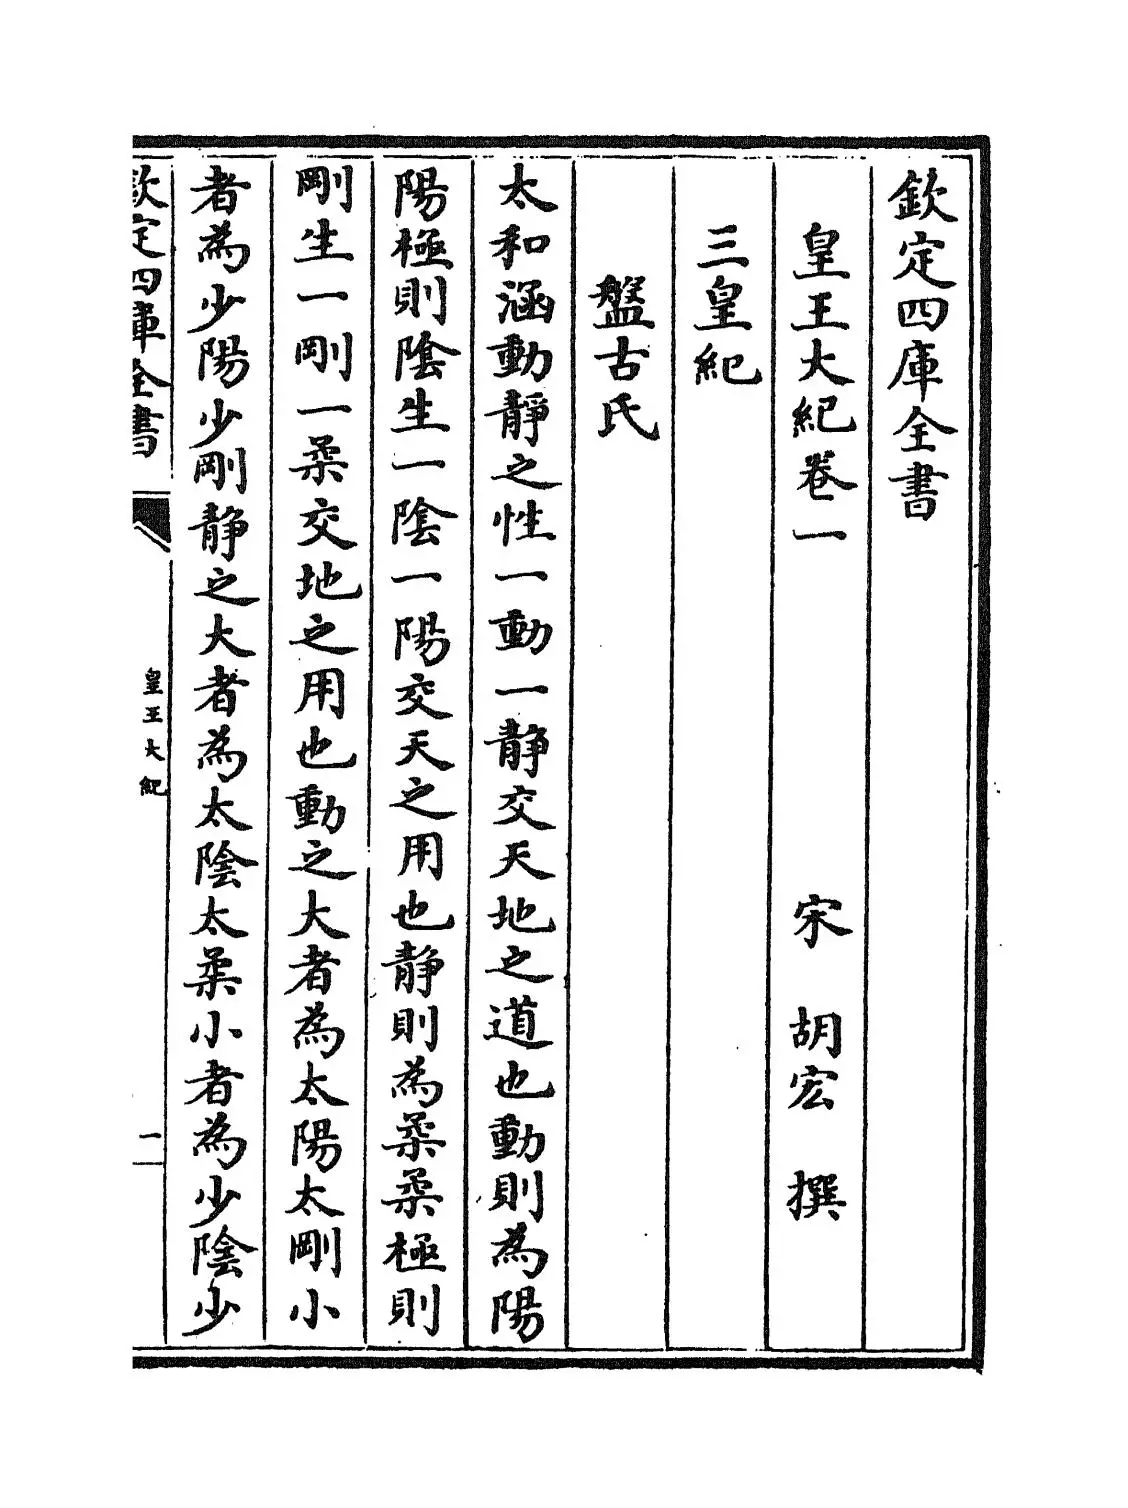 欽定四庫全書
皇王大紀卷一　宋　胡宏　撰
三皇紀
盤古氏
太和涵動靜之性一動一静交天地之道也動則為陽
陽極則隂生一隂一陽交天之用也静則為柔柔極則
剛生一剛一柔交地之用也動之大者為太陽太剛小
者為少陽少剛静之大者為太隂太柔小者為少隂少
欽定四庫全書
皇王大紀
一